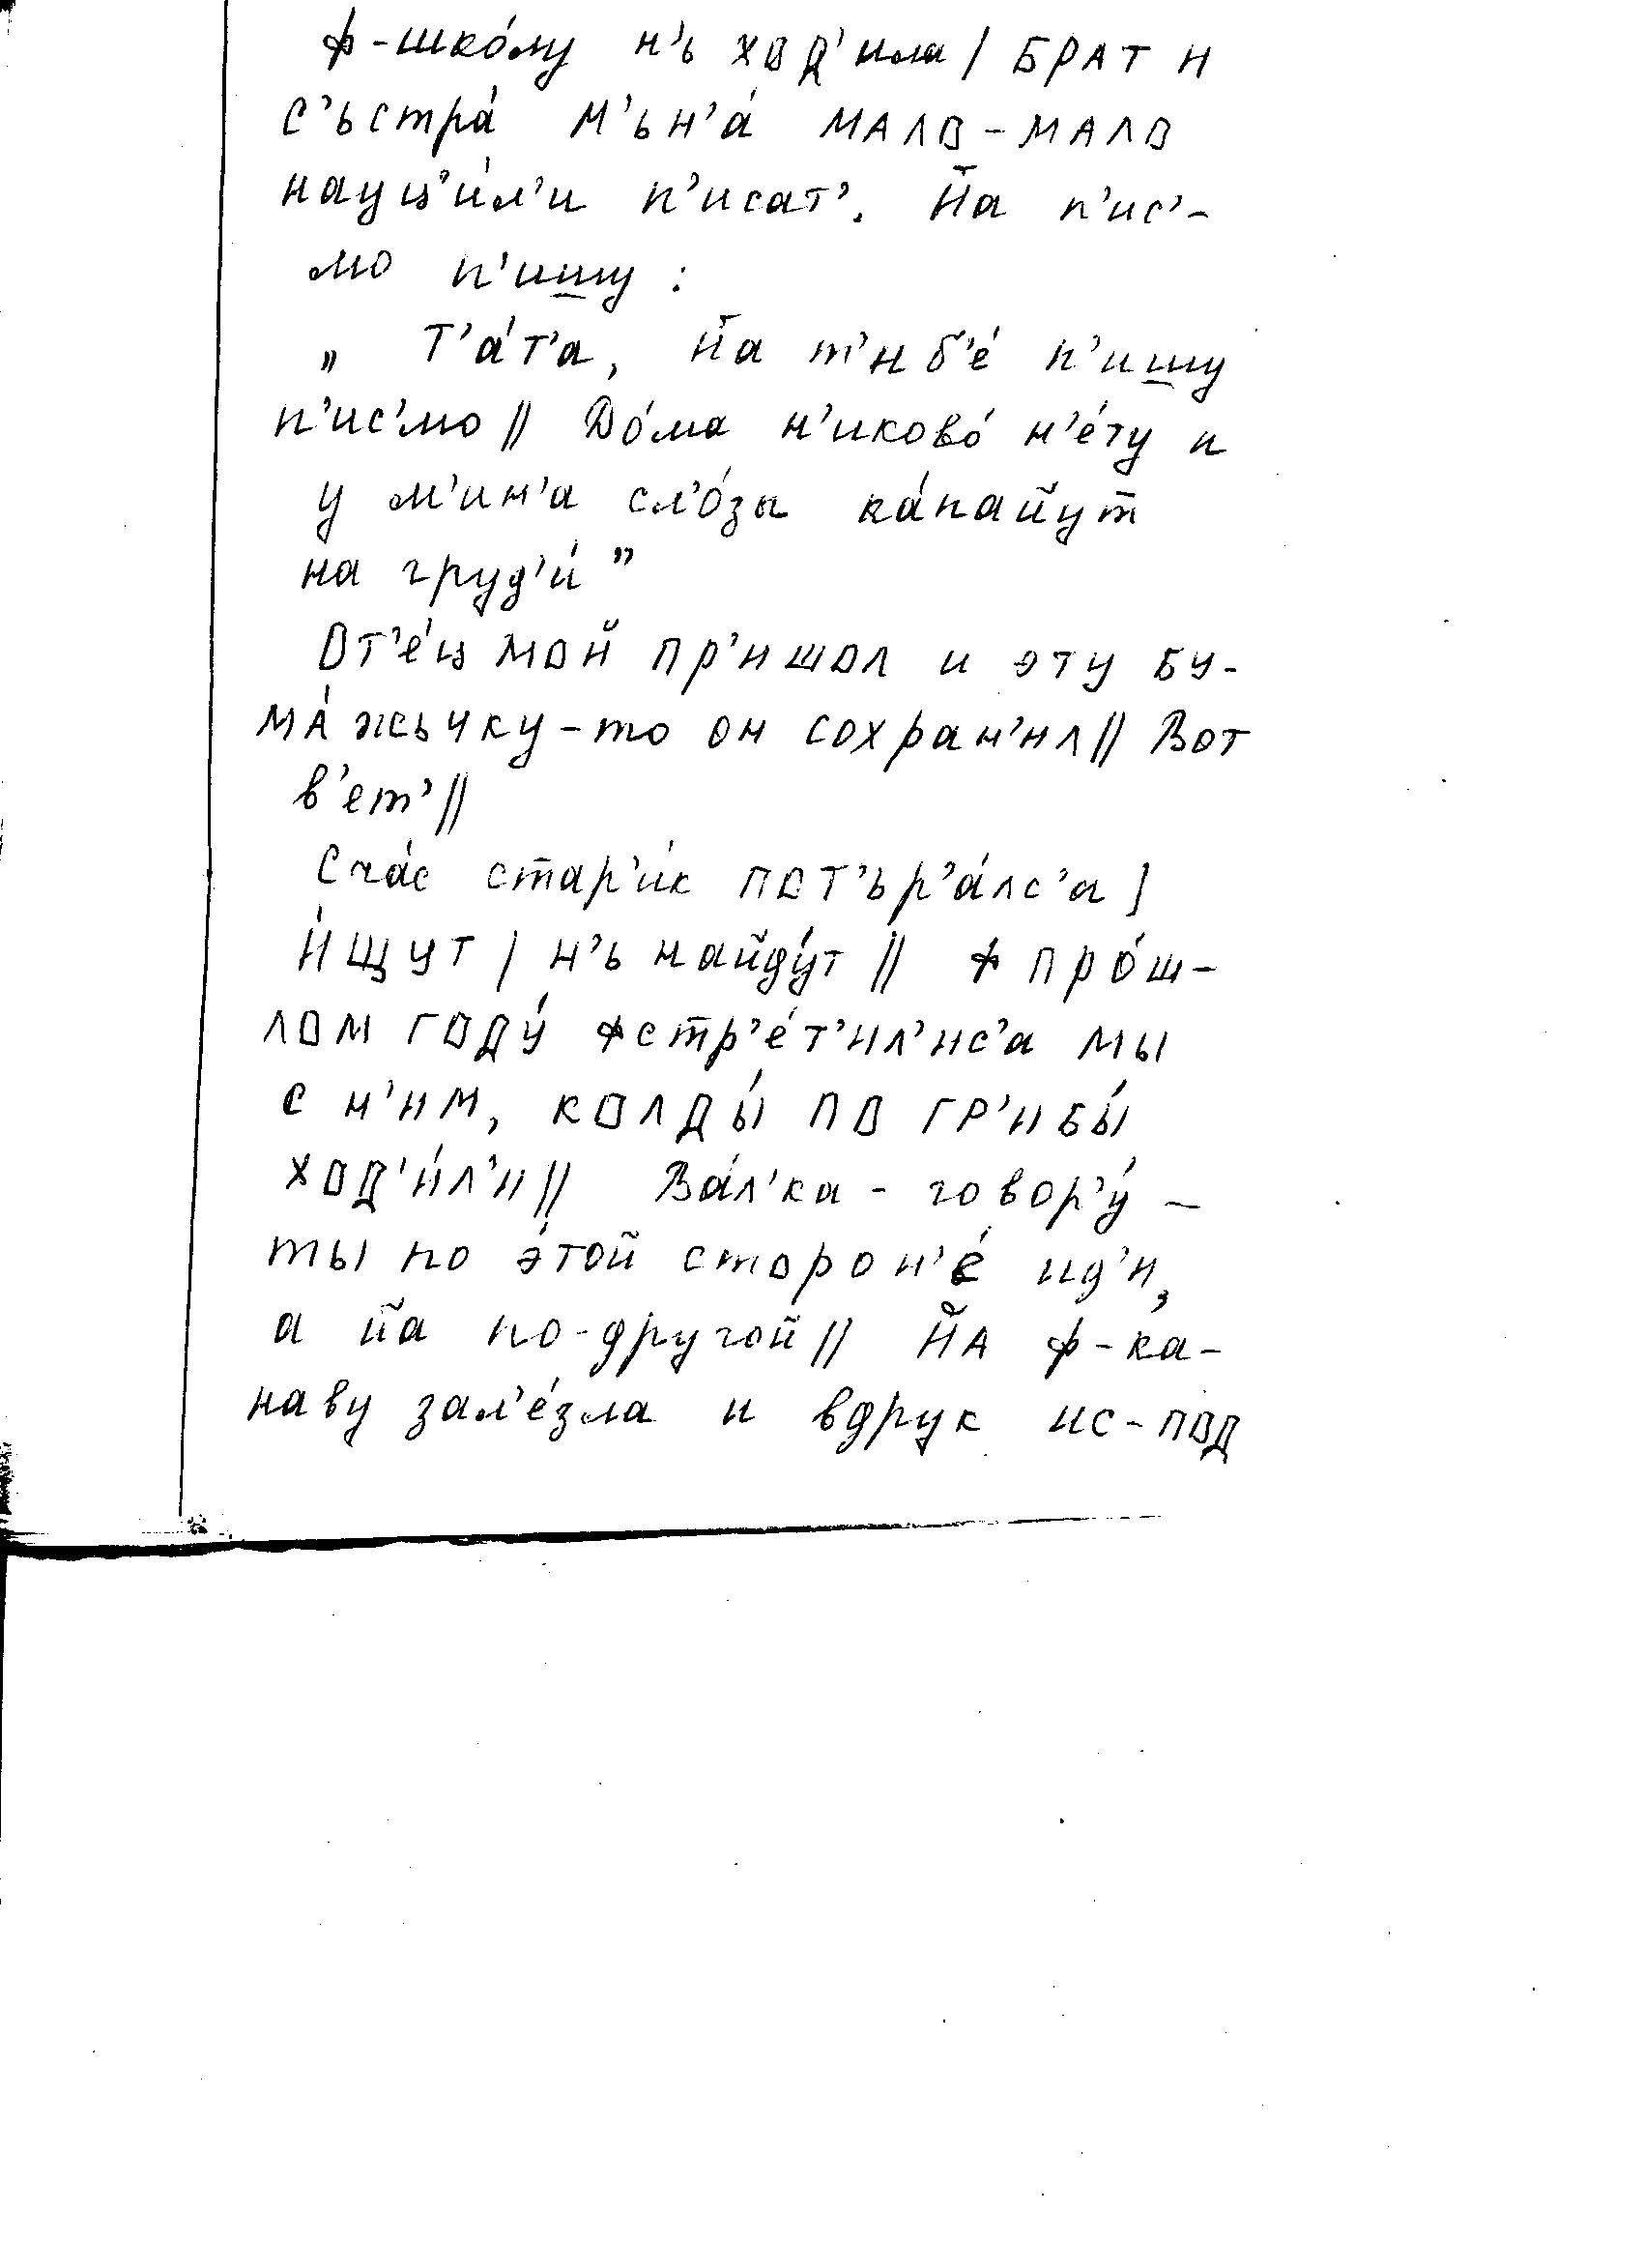 ф-шко́лу н'ь ход'ила / БРАТ и
с'ьстра́ м'ьн'а́ МАЛО-МАЛО
науц'и́л'и п'исат'. Йа п'ис'-
мо п'ишу :
„ Т'а́т'а, йа т'иб'е́ п'ишу
п'ис'мо // До́ма н'иково́ н'е́ту и
у м'ин'а сл'о́зы ка́пайут
на груд'и́ ”
От'е́ц мой пр'ишол и эту бу-
ма́жьчку-то он сохран'ил // Вот
в'ет' //
Сча́с стар'и́к пот'ьр'а́лс'а /
И́щут / н'ь найду́т // ф про́ш-
лом году́ фстр'е́т'ил'ис'а мы
с н'им, колды́ по гр'ибы́
ход'и́л'и // Ва́л'ка - говор'у́ –
ты по э́той сторон'е́ ид'и,
а йа по-другой // Йа ф-ка-
наву зал'е́зла и вдрук ис-под